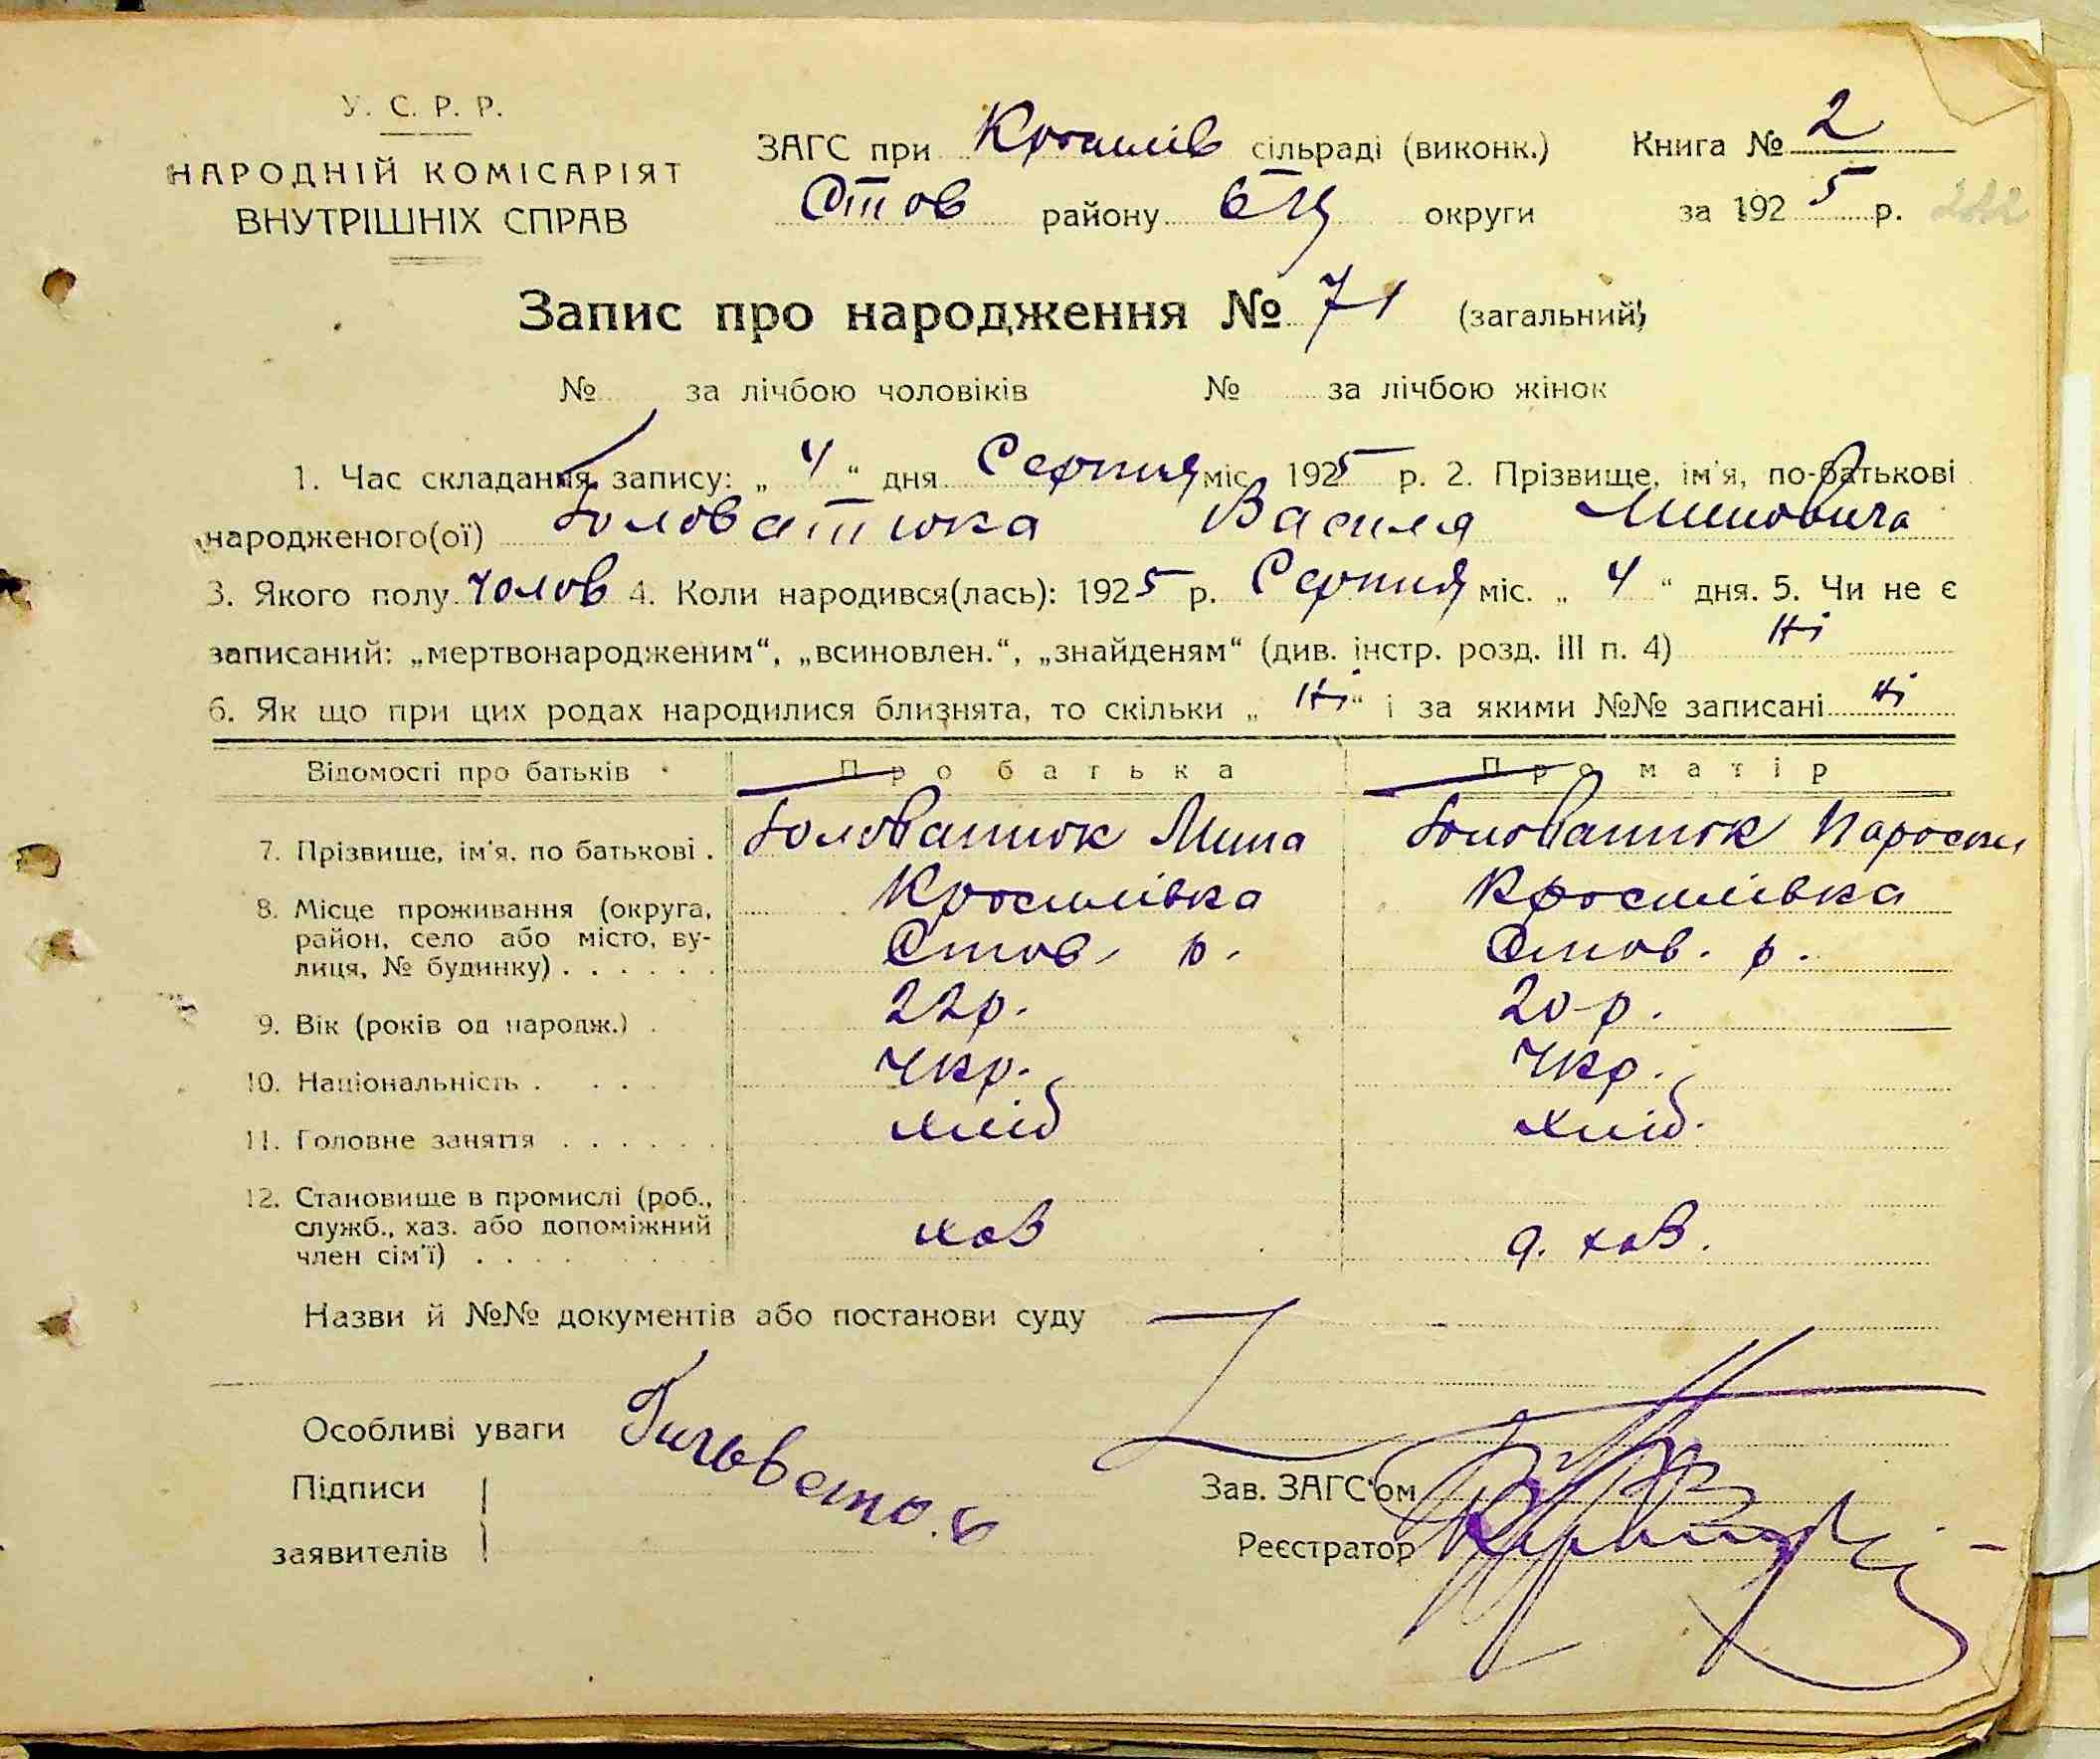 У. С. Р. Р.
НАРОДНІЙ КОМІСАРІЯТ
ВНУТРІШНІХ СПРАВ
ЗАГС при Красилів сільраді (виконк.) Книга № 2
Став району БЦ округи за 1925 р. 222
Запис про народження № 71 (загальний)
№ за лічбою чоловіків № за лічбою жінок
1. Час складання запису: „ 4 “ дня Серпня міс. 1925 р. 2. Прізвище, ім'я, по-батькові
народженого(ої) Головатюка Василя Миновича
3. Якого полу чолов 4. Коли народився(лась): 1925 р. Серпня міс. „ 4 “ дня. 5. Чи не є
записаний: „мертвонародженим“, „всиновлен.“, „знайденям“ (див. інстр. розд. III п. 4) Ні
6. Як що при цих родах народилися близнята, то скільки „ Ні “ і за якими №№ записані ні
Відомості про батьків Про батька Про матір
7. Прізвище, ім'я, по батькові . Головатюк Мина Головатюк Пароскы
8. Місце проживання (округа, Красилівка Красилівка
район, село або місто, ву- Став. р. Став. р.
лиця, № будинку) . . . . . .
9. Вік (років од народж.) . 22 р. 20 р.
10. Національність . . . . Укр. Укр.
11. Головне заняття . . . . . . хліб хліб.
12. Становище в промислі (роб.,
служб., хаз. або допоміжний хаз д. хаз.
член сім'ї) . . . .
Назви й №№ документів або постанови суду
Особливі уваги
Підписи Зав. ЗАГС'ом
заявителів Реєстратор